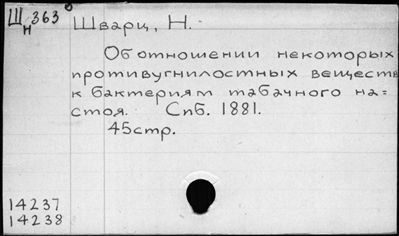 Щн 363
Шварц, Н.
Об отношении некоторых
противугнилостных веществ
к бактериям табачного на=
стоя. Спб. 1881.
45стр.
14237
14238